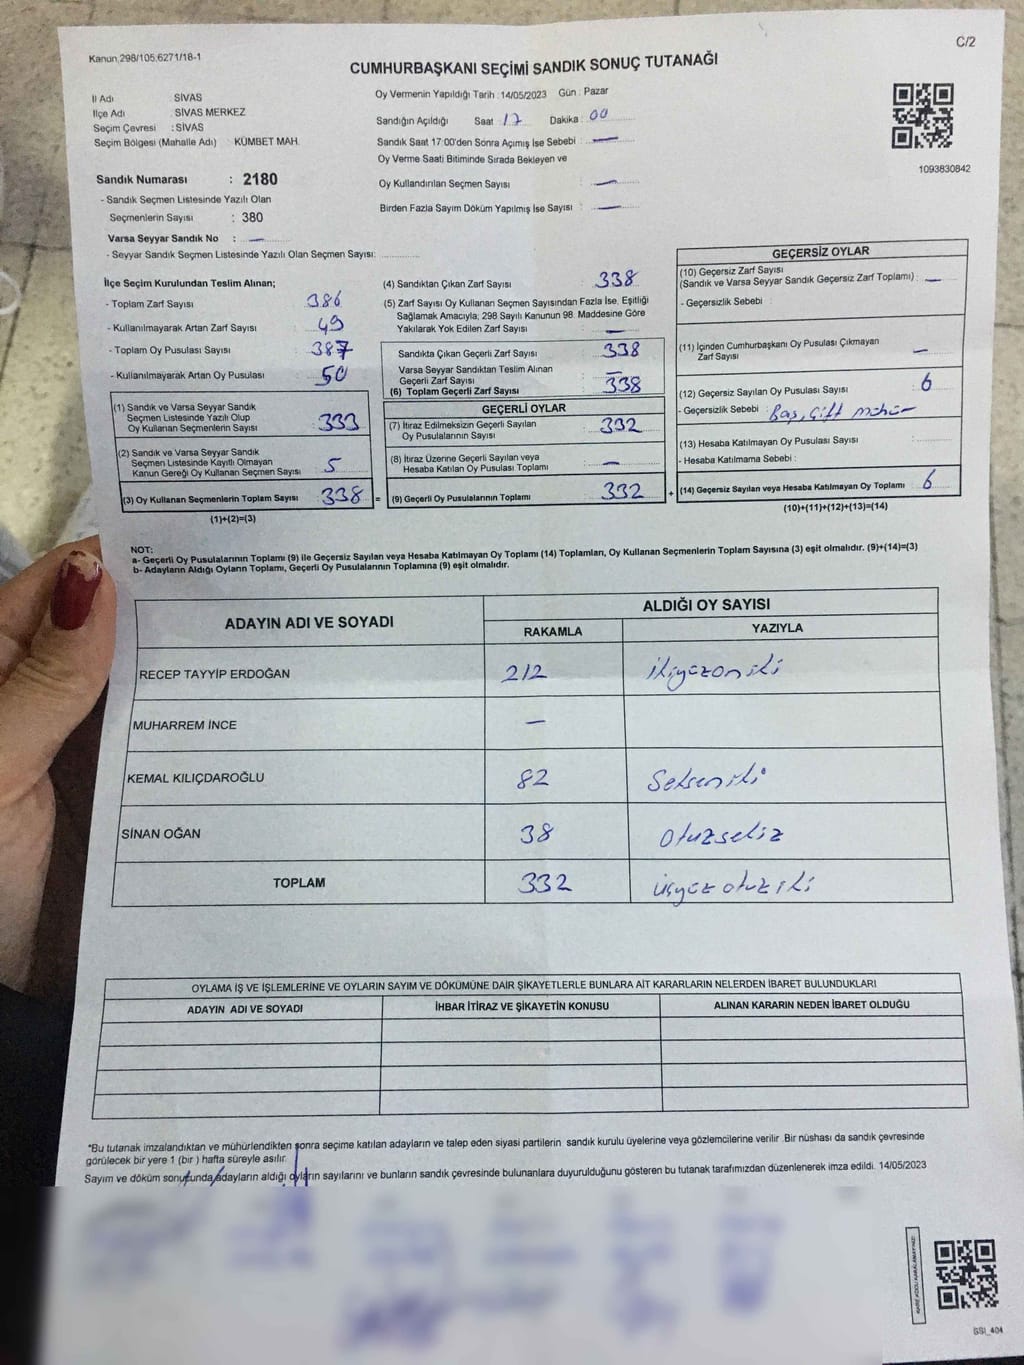 Kanun,298/105,6271/18-1
C/2
CUMHURBAŞKANI SEÇİMİ SANDIK SONUÇ TUTANAĞI
İl Adı : SİVAS
İlçe Adı : SİVAS MERKEZ
Seçim Çevresi : SİVAS
Seçim Bölgesi (Mahalle Adı) : KÜMBET MAH.
Oy Vermenin Yapıldığı Tarih : 14/05/2023 Gün : Pazar
Sandığın Açıldığı Saat 17 Dakika : 00
Sandık Saat 17:00'den Sonra Açımış İse Sebebi : —
Oy Verme Saati Bitiminde Sırada Bekleyen ve
Oy Kullandırılan Seçmen Sayısı : —
Birden Fazla Sayım Döküm Yapılmış İse Sayısı : —
1093830842
Sandık Numarası : 2180
- Sandık Seçmen Listesinde Yazılı Olan
Seçmenlerin Sayısı : 380
Varsa Seyyar Sandık No : —
- Seyyar Sandık Seçmen Listesinde Yazılı Olan Seçmen Sayısı:
İlçe Seçim Kurulundan Teslim Alınan;
- Toplam Zarf Sayısı 386
- Kullanılmayarak Artan Zarf Sayısı 49
- Toplam Oy Pusulası Sayısı 387
- Kullanılmayarak Artan Oy Pusulası 50
(1) Sandık ve Varsa Seyyar Sandık
Seçmen Listesinde Yazılı Olup
Oy Kullanan Seçmenlerin Sayısı : 333
(2) Sandık ve Varsa Seyyar Sandık
Seçmen Listesinde Kayıtlı Olmayan
Kanun Gereği Oy Kullanan Seçmen Sayısı 5
(3) Oy Kullanan Seçmenlerin Toplam Sayısı 338 =
(1)+(2)=(3)
(4) Sandıktan Çıkan Zarf Sayısı 338
(5) Zarf Sayısı Oy Kullanan Seçmen Sayısından Fazla İse, Eşitliği
Sağlamak Amacıyla; 298 Sayılı Kanunun 98. Maddesine Göre
Yakılarak Yok Edilen Zarf Sayısı —
Sandıkta Çıkan Geçerli Zarf Sayısı 338
Varsa Seyyar Sandıktan Teslim Alınan
Geçerli Zarf Sayısı —
(6) Toplam Geçerli Zarf Sayısı : 338
GEÇERLİ OYLAR
(7) İtiraz Edilmeksizin Geçerli Sayılan
Oy Pusulalarının Sayısı : 332
(8) İtiraz Üzerine Geçerli Sayılan veya
Hesaba Katılan Oy Pusulası Toplamı : —
(9) Geçerli Oy Pusulalarının Toplamı 332 +
GEÇERSİZ OYLAR
(10) Geçersiz Zarf Sayısı
(Sandık ve Varsa Seyyar Sandık Geçersiz Zarf Toplamı) : —
- Geçersizlik Sebebi :
(11) İçinden Cumhurbaşkanı Oy Pusulası Çıkmayan
Zarf Sayısı —
(12) Geçersiz Sayılan Oy Pusulası Sayısı : 6
- Geçersizlik Sebebi : Boş, Çift mühür
(13) Hesaba Katılmayan Oy Pusulası Sayısı :
- Hesaba Katılmama Sebebi :
(14) Geçersiz Sayılan veya Hesaba Katılmayan Oy Toplamı 6
(10)+(11)+(12)+(13)=(14)
NOT:
a- Geçerli Oy Pusulalarının Toplamı (9) ile Geçersiz Sayılan veya Hesaba Katılmayan Oy Toplamı (14) Toplamları, Oy Kullanan Seçmenlerin Toplam Sayısına (3) eşit olmalıdır. (9)+(14)=(3)
b- Adayların Aldığı Oyların Toplamı, Geçerli Oy Pusulalarının Toplamına (9) eşit olmalıdır.
ADAYIN ADI VE SOYADI
ALDIĞI OY SAYISI
RAKAMLA YAZIYLA
RECEP TAYYİP ERDOĞAN 212 ikiyüzoniki
MUHARREM İNCE —
KEMAL KILIÇDAROĞLU 82 Seksen iki
SİNAN OĞAN 38 Otuzsekiz
TOPLAM 332 üçyüz otuz iki
OYLAMA İŞ VE İŞLEMLERİNE VE OYLARIN SAYIM VE DÖKÜMÜNE DAİR ŞİKAYETLERLE BUNLARA AİT KARARLARIN NELERDEN İBARET BULUNDUKLARI
ADAYIN ADI VE SOYADI İHBAR İTİRAZ VE ŞİKAYETİN KONUSU ALINAN KARARIN NEDEN İBARET OLDUĞU
*Bu tutanak imzalandıktan ve mühürlendikten sonra seçime katılan adayların ve talep eden siyasi partilerin sandık kurulu üyelerine veya gözlemcilerine verilir .Bir nüshası da sandık çevresinde
görülecek bir yere 1 (bir ) hafta süreyle asılır.
Sayım ve döküm sonucunda adayların aldığı oyların sayılarını ve bunların sandık çevresinde bulunanlara duyurulduğunu gösteren bu tutanak tarafımızdan düzenlenerek imza edildi. 14/05/2023
KARE KODU KARALAMAYINIZ!
SSI_404